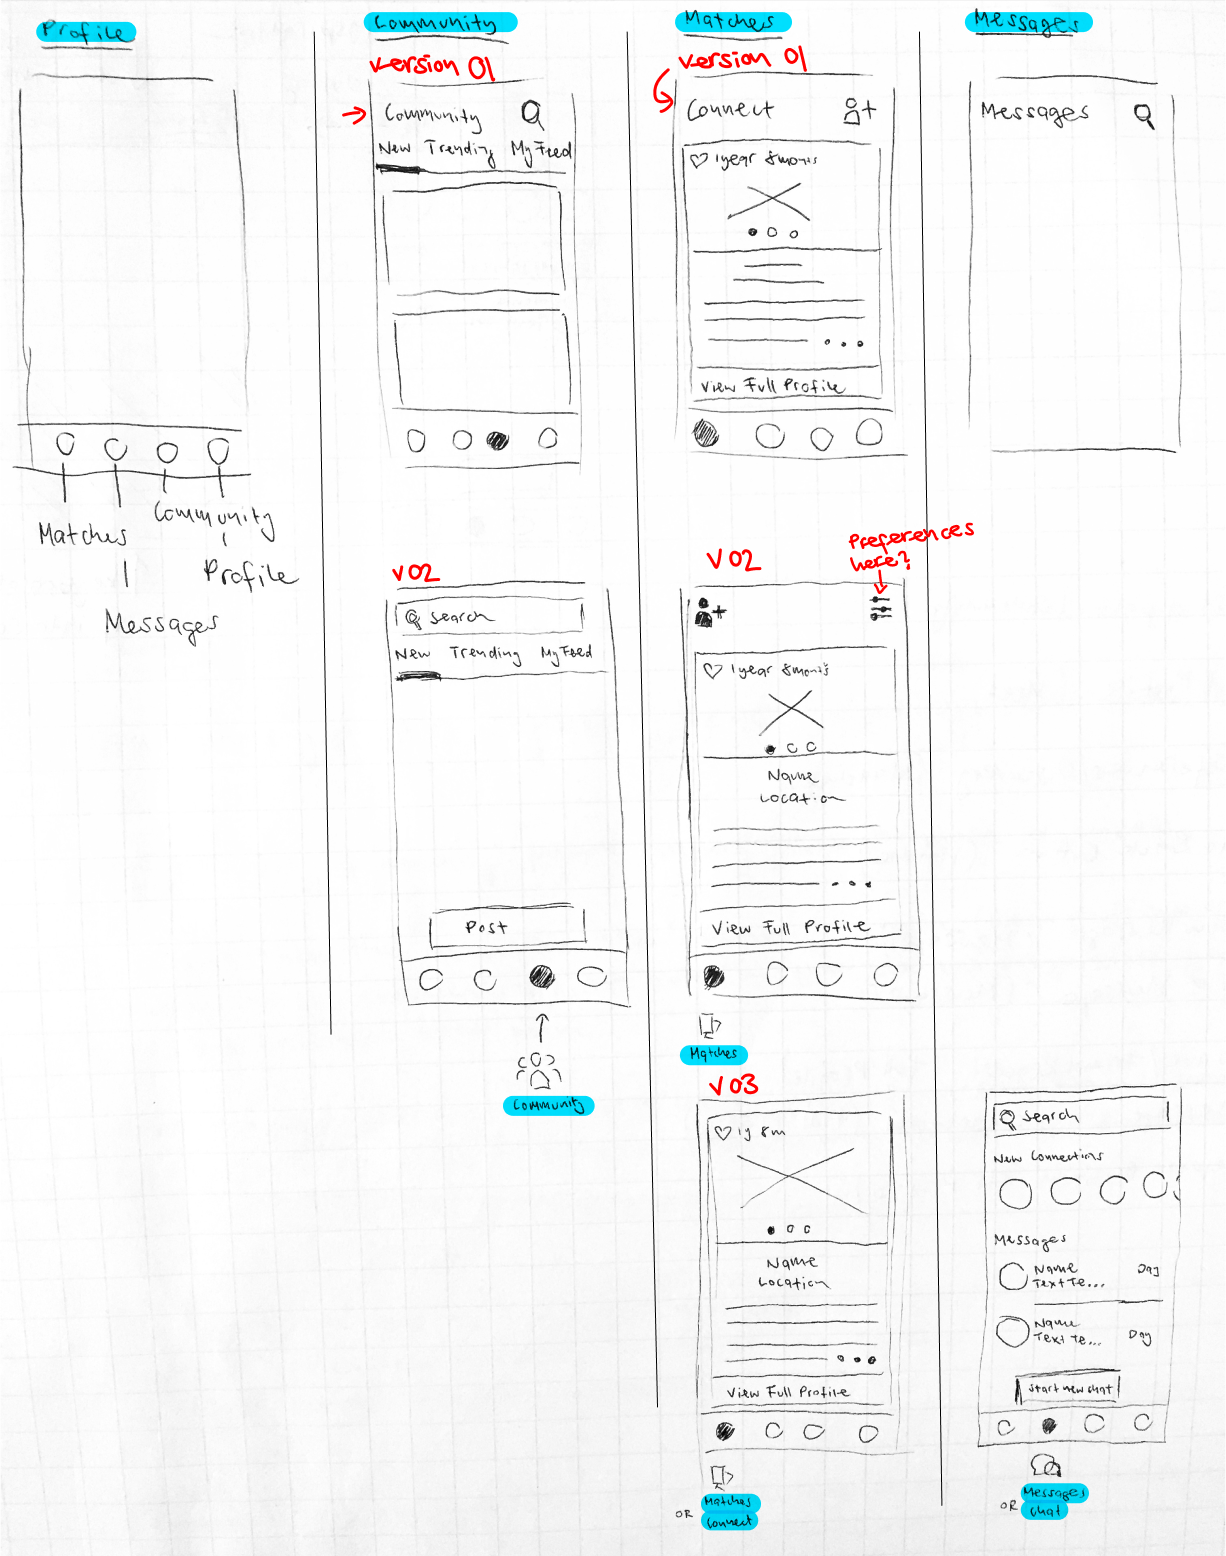 Profile
Matches
Community
Profile
Messages
Community
Version 01
Community
New Trending My Feed
V02
Search
New Trending My Feed
Post
Community
Matches
Version 01
Connect
1year 8monts
View Full Profile
V02
Preferences
here?
1year 8mont's
Name
Location
View Full Profile
Matches
V03
1y 8m
Name
Location
View Full Profile
OR
Matches
Connect
Messages
Messages
Search
New Connections
Messages
Name
Text Te...
Day
Name
Text Te...
Day
Start new chat
OR
Messages
Chat